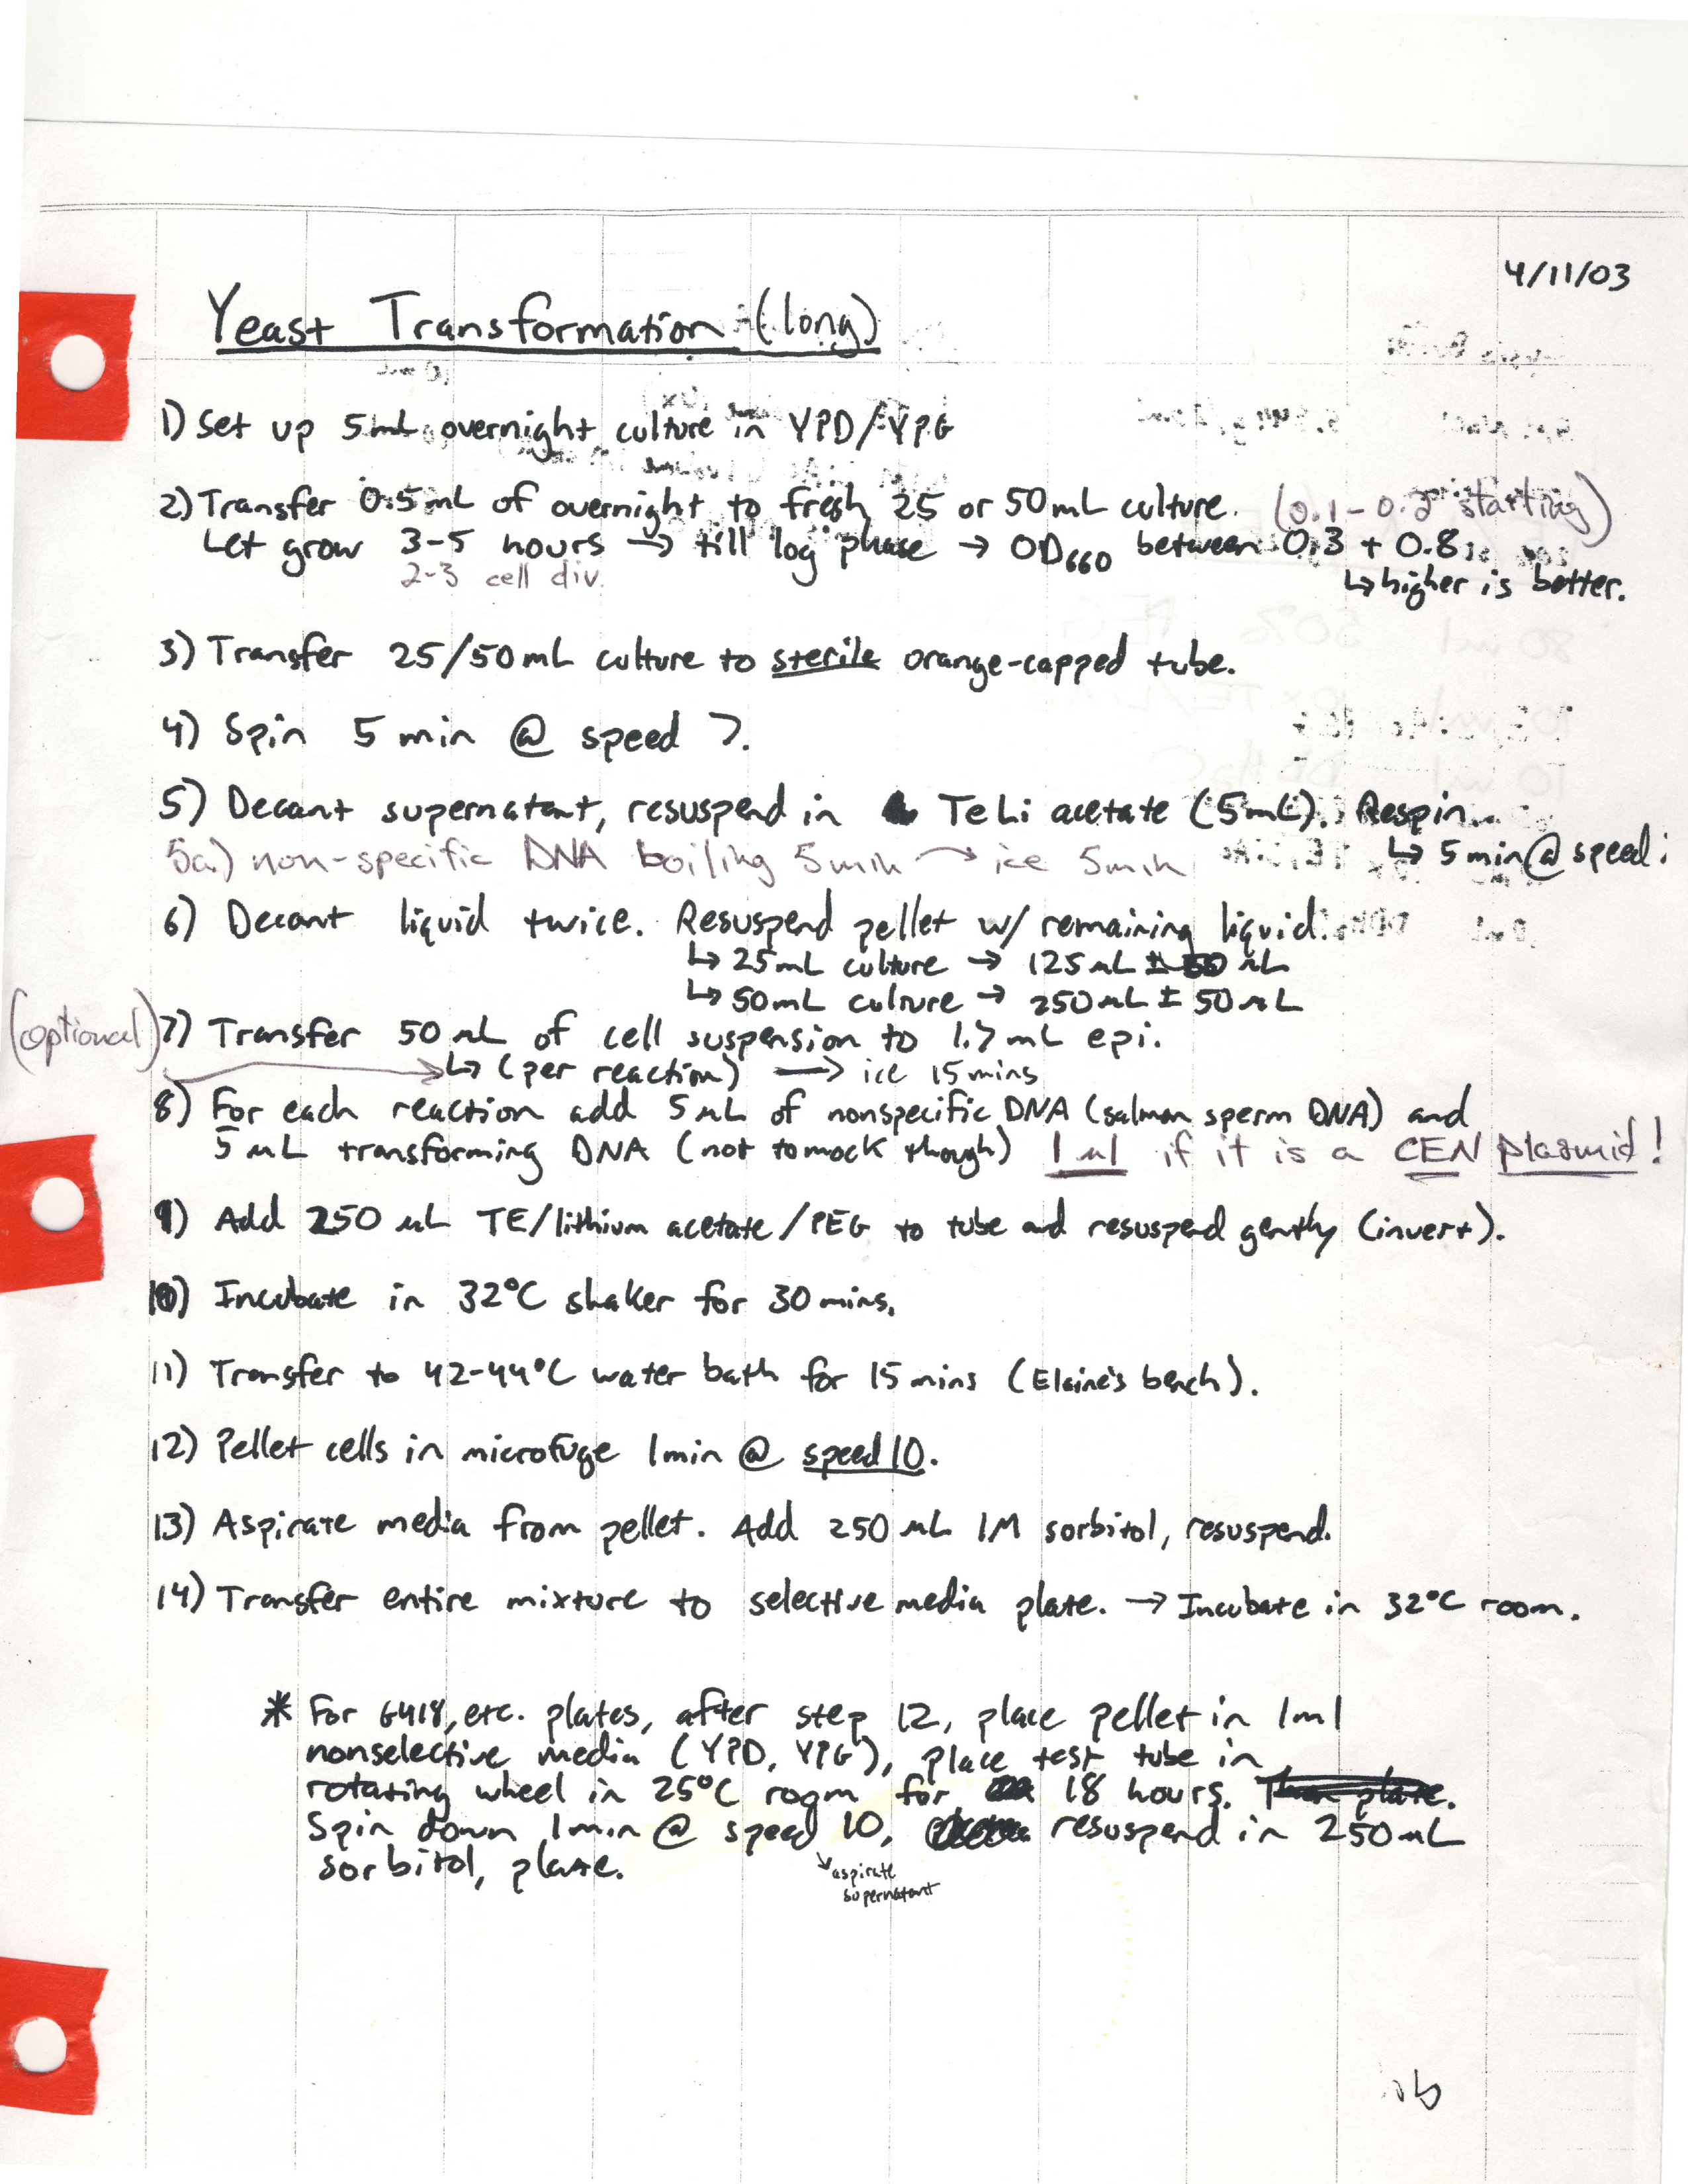 4/11/03
Yeast Transformation (long)
1) Set up 5mL overnight culture in YPD/YPG
2) Transfer 0.5mL of overnight to fresh 25 or 50mL culture. (0.1-0.2 starting)
Let grow 3-5 hours → till log phase → OD660 between 0.3 + 0.8
2-3 cell div.
↳ higher is better.
3) Transfer 25/50mL culture to sterile orange-capped tube.
4) Spin 5 min @ speed 7.
5) Decant supernatant, resuspend in TeLi acetate (5mL). Respin.
↳ 5 min @ speed
5a) non-specific DNA boiling 5min → ice 5min
6) Decant liquid twice. Resuspend pellet w/ remaining liquid.
↳ 25mL culture → 125uL ± 50 uL
↳ 50mL culture → 250uL ± 50uL
(optional) 7) Transfer 50 uL of cell suspension to 1.7mL epi.
↳ (per reaction) → ice 15mins
8) For each reaction add 5uL of nonspecific DNA (salmon sperm DNA) and
5 uL transforming DNA (not to mock though) 1ul if it is a CEN plasmid!
9) Add 250 uL TE/lithium acetate/PEG to tube and resuspend gently (invert).
10) Incubate in 32°C shaker for 30 mins.
11) Transfer to 42-44°C water bath for 15 mins (Elaine's bench).
12) Pellet cells in microfuge 1min @ speed 10.
13) Aspirate media from pellet. Add 250 uL 1M sorbitol, resuspend.
14) Transfer entire mixture to selective media plate. → Incubate in 32°C room.
* For G418, etc. plates, after step 12, place pellet in 1ml
nonselective media (YPD, YPG), place test tube in
rotating wheel in 25°C room for 18 hours. Then plate.
Spin down 1min @ speed 10, resuspend in 250uL
sorbitol, plate.
↘ aspirate
supernatant